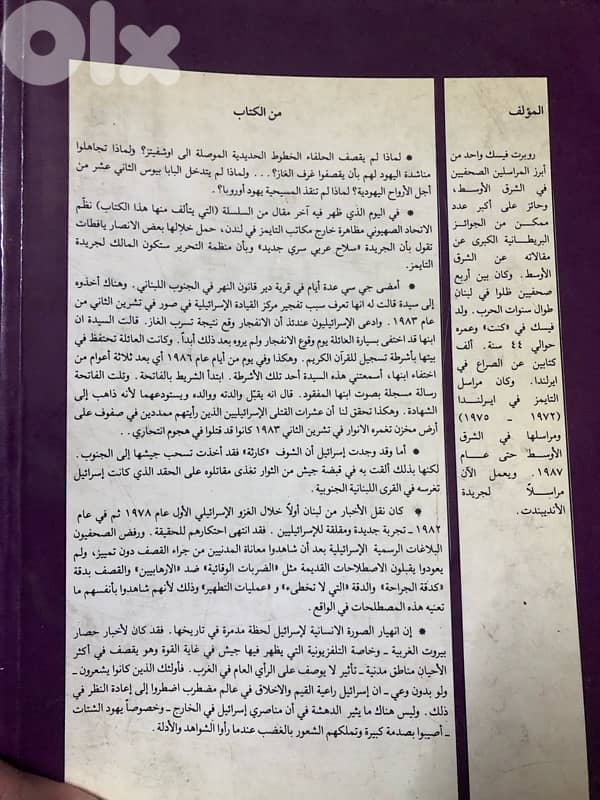 OLX
المؤلف
روبرت فيسك واحد من
أبرز المراسلين الصحفيين
في الشرق الأوسط،
وحائز على أكبر عدد
ممكن من الجوائز
البريطانية الكبرى عن
مقالاته عن الشرق
الأوسط. وكان بين أربع
صحفيين ظلوا في لبنان
طوال سنوات الحرب. ولد
فيسك في «كنت» وعمره
حوالي ٤٤ سنة. ألف
كتابين عن الصراع في
ايرلندا. وكان مراسل
التايمز في ايرلندا
(١٩٧٢ - ١٩٧٥)
ومراسلها في الشرق
الأوسط حتى عام
١٩٨٧. ويعمل الآن
مراسلاً لجريدة
الأندبيندت.
من الكتاب
● لماذا لم يقصف الحلفاء الخطوط الحديدية الموصلة الى اوشفيتز؟ ولماذا تجاهلوا
مناشدة اليهود لهم بأن يقصفوا غرف الغاز؟ . . . ولماذا لم يتدخل البابا بيوس الثاني عشر من
أجل الأرواح اليهودية؟ لماذا لم تنقذ المسيحية يهود أوروبا؟.
● في اليوم الذي ظهر فيه آخر مقال من السلسلة (التي يتألف منها هذا الكتاب) نظّم
الاتحاد الصهيوني مظاهرة خارج مكاتب التايمز في لندن، حمل خلالها بعض الانصار يافطات
تقول بأن الجريدة «سلاح عربي سري جديد» وبأن منظمة التحرير ستكون المالك لجريدة
التايمز.
● أمضى جي سي عدة أيام في قرية دير قانون النهر في الجنوب اللبناني. وهناك أخذوه
إلى سيدة قالت له انها تعرف سبب تفجير مركز القيادة الإسرائيلية في صور في تشرين الثاني من
عام ١٩٨٣. وادعى الإسرائيليون عندئذ أن الانفجار وقع نتيجة تسرب الغاز. قالت السيدة ان
ابنها قد اختفى بسيارة العائلة يوم وقوع الانفجار ولم يروه بعد ذلك أبداً. وكانت العائلة تحتفظ في
بيتها بأشرطة تسجيل للقرآن الكريم. وهكذا وفي يوم من أيام عام ١٩٨٦ أي بعد ثلاثة أعوام من
اختفاء ابنها، أسمعتني هذه السيدة أحد تلك الأشرطة. ابتدأ الشريط بالفاتحة. وتلت الفاتحة
رسالة مسجلة بصوت ابنها المفقود. قال انه يقبّل والدته ووالده ويستودعهما لأنه ذاهب إلى
الشهادة. وهكذا تحقق لنا أن عشرات القتلى الإسرائيليين الذين رأيتهم ممددين في صفوف على
أرض مخزن تغمره الانوار في تشرين الثاني ١٩٨٣ كانوا قد قتلوا في هجوم انتحاري..
● أما وقد وجدت إسرائيل أن الشوف «كارثة» فقد أخذت تسحب جيشها إلى الجنوب.
لكنها بذلك ألقت به في قبضة جيش من الثوار تغذى مقاتلوه على الحقد الذي كانت إسرائيل
تغرسه في القرى اللبنانية الجنوبية.
● كان نقل الأخبار من لبنان أولاً خلال الغزو الإسرائيلي الأول عام ١٩٧٨ ثم في عام
١٩٨٢ ـ تجربة جديدة ومقلقة للإسرائيليين. فقد انتهى احتكارهم للحقيقة. ورفض الصحفيون
البلاغات الرسمية الإسرائيلية بعد أن شاهدوا معاناة المدنيين من جراء القصف دون تمييز، ولم
يعودوا يقبلون الاصطلاحات القديمة مثل «الضربات الوقائية» ضد «الارهابيين» والقصف بدقة
«كدقة الجراحة» والدقة «التي لا تخطىء» و«عمليات التطهير» وذلك لأنهم شاهدوا بأنفسهم ما
تعنيه هذه المصطلحات في الواقع.
● إن انهيار الصورة الانسانية لإسرائيل لحظة مدمرة في تاريخها. فقد كان لأخبار حصار
بيروت الغربية ـ وخاصة التلفزيونية التي يظهر فيها جيش في غاية القوة وهو يقصف في أكثر
الأحيان مناطق مدنية ـ تأثير لا يوصف على الرأي العام في الغرب. فأولئك الذين كانوا يشعرون ـ
ولو بدون وعي ـ ان إسرائيل راعية القيم والاخلاق في عالم مضطرب اضطروا إلى إعادة النظر في
ذلك. وليس هناك ما يثير الدهشة في أن مناصري إسرائيل في الخارج ـ وخصوصاً يهود الشتات
ـ أصيبوا بصدمة كبيرة وتملكهم الشعور بالغضب عندما رأوا الشواهد والأدلة.